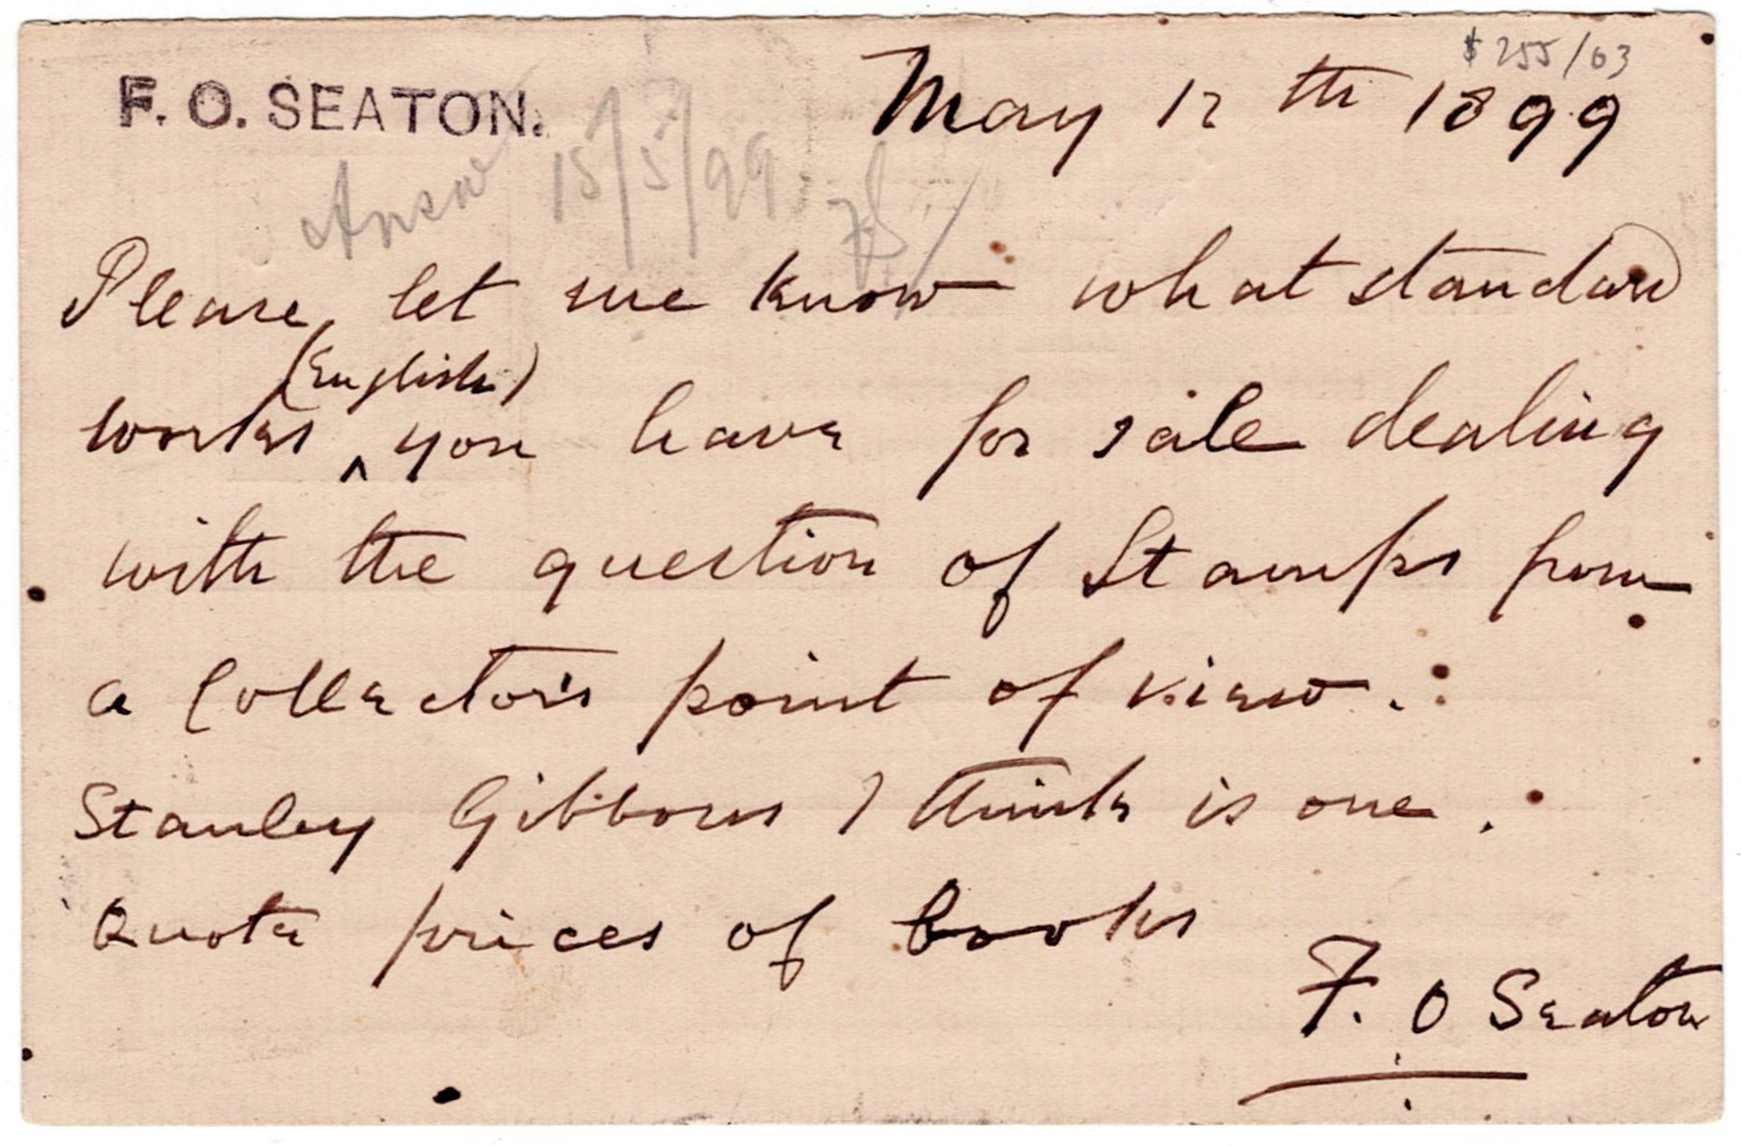 $255/03
F. O. SEATON.
May 12th 1899
Answ 15/5/99
Please let me know what standard
(English)
works ^ you have for sale dealing
with the question of Stamps from
a Collectors point of view.
Stanley Gibbons I think is one.
Quote prices of books
F. O Seaton